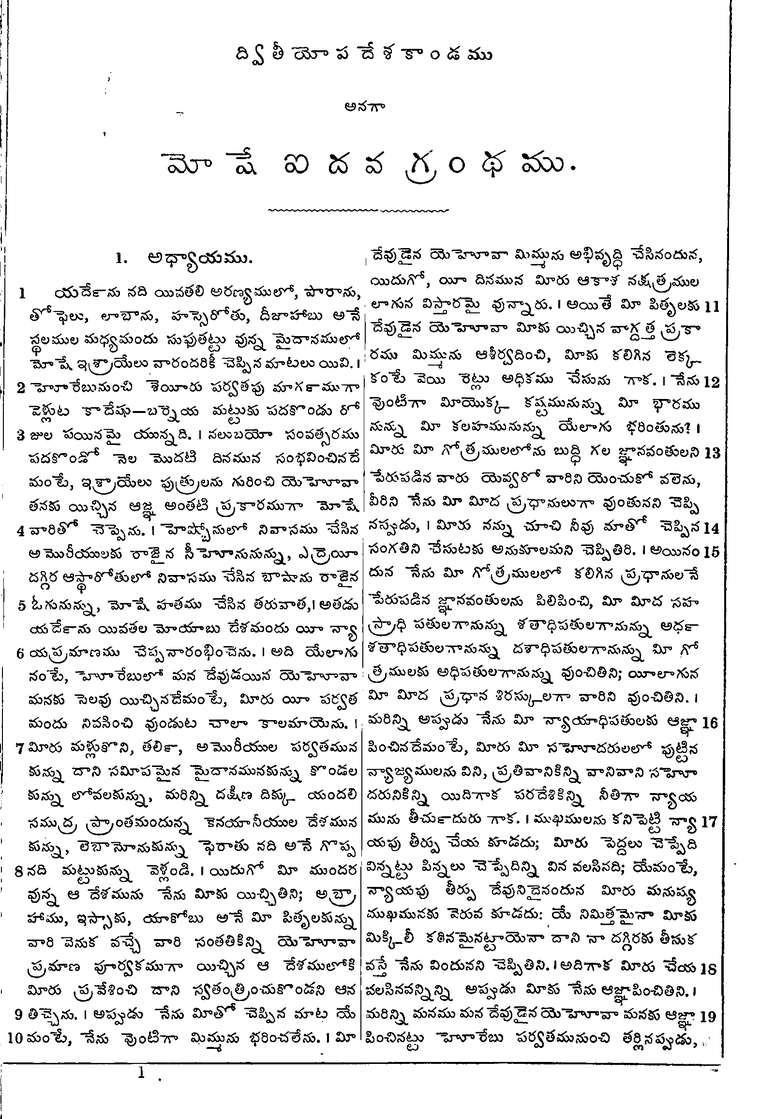 ద్వితీయోపదేశకాండము
అనగా
మోషే ఐదవ గ్రంథము.
1. అధ్యాయము.
1 యదే౯ను నది యివతలి అరణ్యములో, పారాను,
తోఫెలు, లాబాను, హస్సెరోతు, దీజాహాబు అనే
స్థలముల మధ్యమందు సుఫుతట్టు వున్న మైదానములో
మోషే ఇశ్రాయేలు వారందరికీ చెప్పిన మాటలు యివి. ।
2 హొరేబునుంచి శెయీరు పర్వతపు మాగ౯ముగా
వెళ్లుట కాదేషు—బర్నెయ మట్టుకు పదకొండు రో
3 జుల పయినమై యున్నది. । నలుబయో సంవత్సరము
పదకొండో నెల మొదటి దినమున సంభవించినదే
మంటే, ఇశ్రాయేలు పుత్రులను గురించి యెహోవా
తనకు యిచ్చిన ఆజ్ఞ అంతటి ప్రకారముగా మోషే
4 వారితో చెప్పెను. । హెష్బోనులో నివాసము చేసిన
అమోరీయులకు రాజైన సీహోనునున్ను, ఎద్రెయీ
దగ్గిర ఆస్థారోతులో నివాసము చేసిన బాషాను రాజైన
5 ఓగునున్ను, మోషే హతము చేసిన తరువాత, । అతడు
యదే౯ను యివతల మోయాబు దేశమందు యీ న్యా
6 యప్రమాణము చెప్పనారంభించెను. । అది యేలాగు
నంటే, హొరేబులో మన దేవుడయిన యెహోవా
మనకు సెలవు యిచ్చినదేమంటే, మీరు యీ పర్వత
మందు నివసించి వుండుట చాలా కాలమాయెను. ।
7 మీరు మళ్లుకొని, తలి౯, అమోరీయుల పర్వతమున
కున్ను దాని సమీపమైన మైదానమునకున్ను కొండల
కున్ను లోవలకున్ను, మరిన్ని దక్షిణ దిక్కు యందలి
సముద్ర ప్రాంతమందున్న కెనయానీయుల దేశమున
కున్ను, లెబానోనుకున్ను ఫెరాతు నది అనే గొప్ప
8 నది మట్టుకున్ను వెళ్లండి. । యిదుగో మీ ముందర
వున్న ఆ దేశమును నేను మీకు యిచ్చితిని; అబ్రా
హాము, ఇస్సాకు, యాకోబు అనే మీ పితృలకున్ను
వారి వెనుక వచ్చే వారి సంతతికిన్ని యెహోవా
ప్రమాణ పూర్వకముగా యిచ్చిన ఆ దేశములోకి
మీరు ప్రవేశించి దాని స్వతంత్రించుకొండని ఆన
9 తిచ్చెను. । అప్పుడు నేను మీతో చెప్పిన మాట యే
10 మంటే, నేను వొంటిగా మిమ్మును భరించలేను. । మీ
దేవుడైన యెహోవా మిమ్మును అభివృద్ధి చేసినందున,
యిదుగో, యీ దినమున మీరు ఆకాశ నక్షత్రముల
లాగున విస్తారమై వున్నారు. । అయితే మీ పితృలకు 11
దేవుడైన యెహోవా మీకు యిచ్చిన వాగ్దత్త ప్రకా
రము మిమ్మును ఆశీర్వదించి, మీకు కలిగిన లెక్క
కంటే వెయి రెట్లు అధికము చేసును గాక. । నేను 12
వొంటిగా మీయొక్క కష్టమునున్ను మీ భారము
నున్ను మీ కలహమునున్ను యేలాగు భరింతును? ।
మీరు మీ గోత్రములలోను బుద్ధి గల జ్ఞానవంతులని 13
పేరుపడిన వారు యెవ్వరో వారిని యెంచుకో వలెను,
వీరిని నేను మీ మీద ప్రధానులుగా వుంతునని చెప్పి
నప్పుడు, । మీరు నన్ను చూచి నీవు మాతో చెప్పిన 14
సంగతిని చేసుటకు అనుకూలమని చెప్పితిరి. । అయినం 15
దున నేను మీ గోత్రములలో కలిగిన ప్రధానులనే
పేరుపడిన జ్ఞానవంతులను పిలిపించి, మీ మీద సహ
స్రాధి పతులుగానున్ను శతాధిపతులుగానున్ను అధ౯
శతాధిపతులుగానున్ను దశాధిపతులుగానున్ను మీ గో
త్రములకు అధిపతులుగానున్ను వుంచితిని; యీలాగున
మీ మీద ప్రధాన శిరస్కులుగా వారిని వుంచితిని. ।
మరిన్ని అప్పుడు నేను మీ న్యాయాధిపతులకు ఆజ్ఞా 16
పించినదేమంటే, మీరు మీ సహోదరులలో పుట్టిన
వ్యాజ్యములను విని, ప్రతివానికిన్ని వానివాని సహో
దరునికిన్ని యిదిగాక పరదేశికిన్ని నీతిగా న్యాయ
మును తీచు౯దురు గాక. । ముఖములను కనిపెట్టి న్యా 17
యపు తీర్పు చేయ కూడదు; మీరు పెద్దలు చెప్పేది
విన్నట్టు పిన్నలు చెప్పేదిన్ని విన వలసినది; యేమంటే,
న్యాయపు తీర్పు దేవునిదైనందున మీరు మనుష్య
ముఖమునకు వెరువ కూడదు: యే నిమిత్తమైనా మీకు
మిక్కిలీ కఠినమైనట్టాయెనా దాని నా దగ్గిరకు తీసుక
వస్తే నేను విందునని చెప్పితిని. । అదిగాక మీరు చేయ 18
వలసినవన్నిన్ని అప్పుడు మీకు నేను ఆజ్ఞాపించితిని. ।
మరిన్ని మనము మన దేవుడైన యెహోవా మనకు ఆజ్ఞా 19
పించినట్టు హొరేబు పర్వతమునుంచి తర్లినప్పుడు,
1